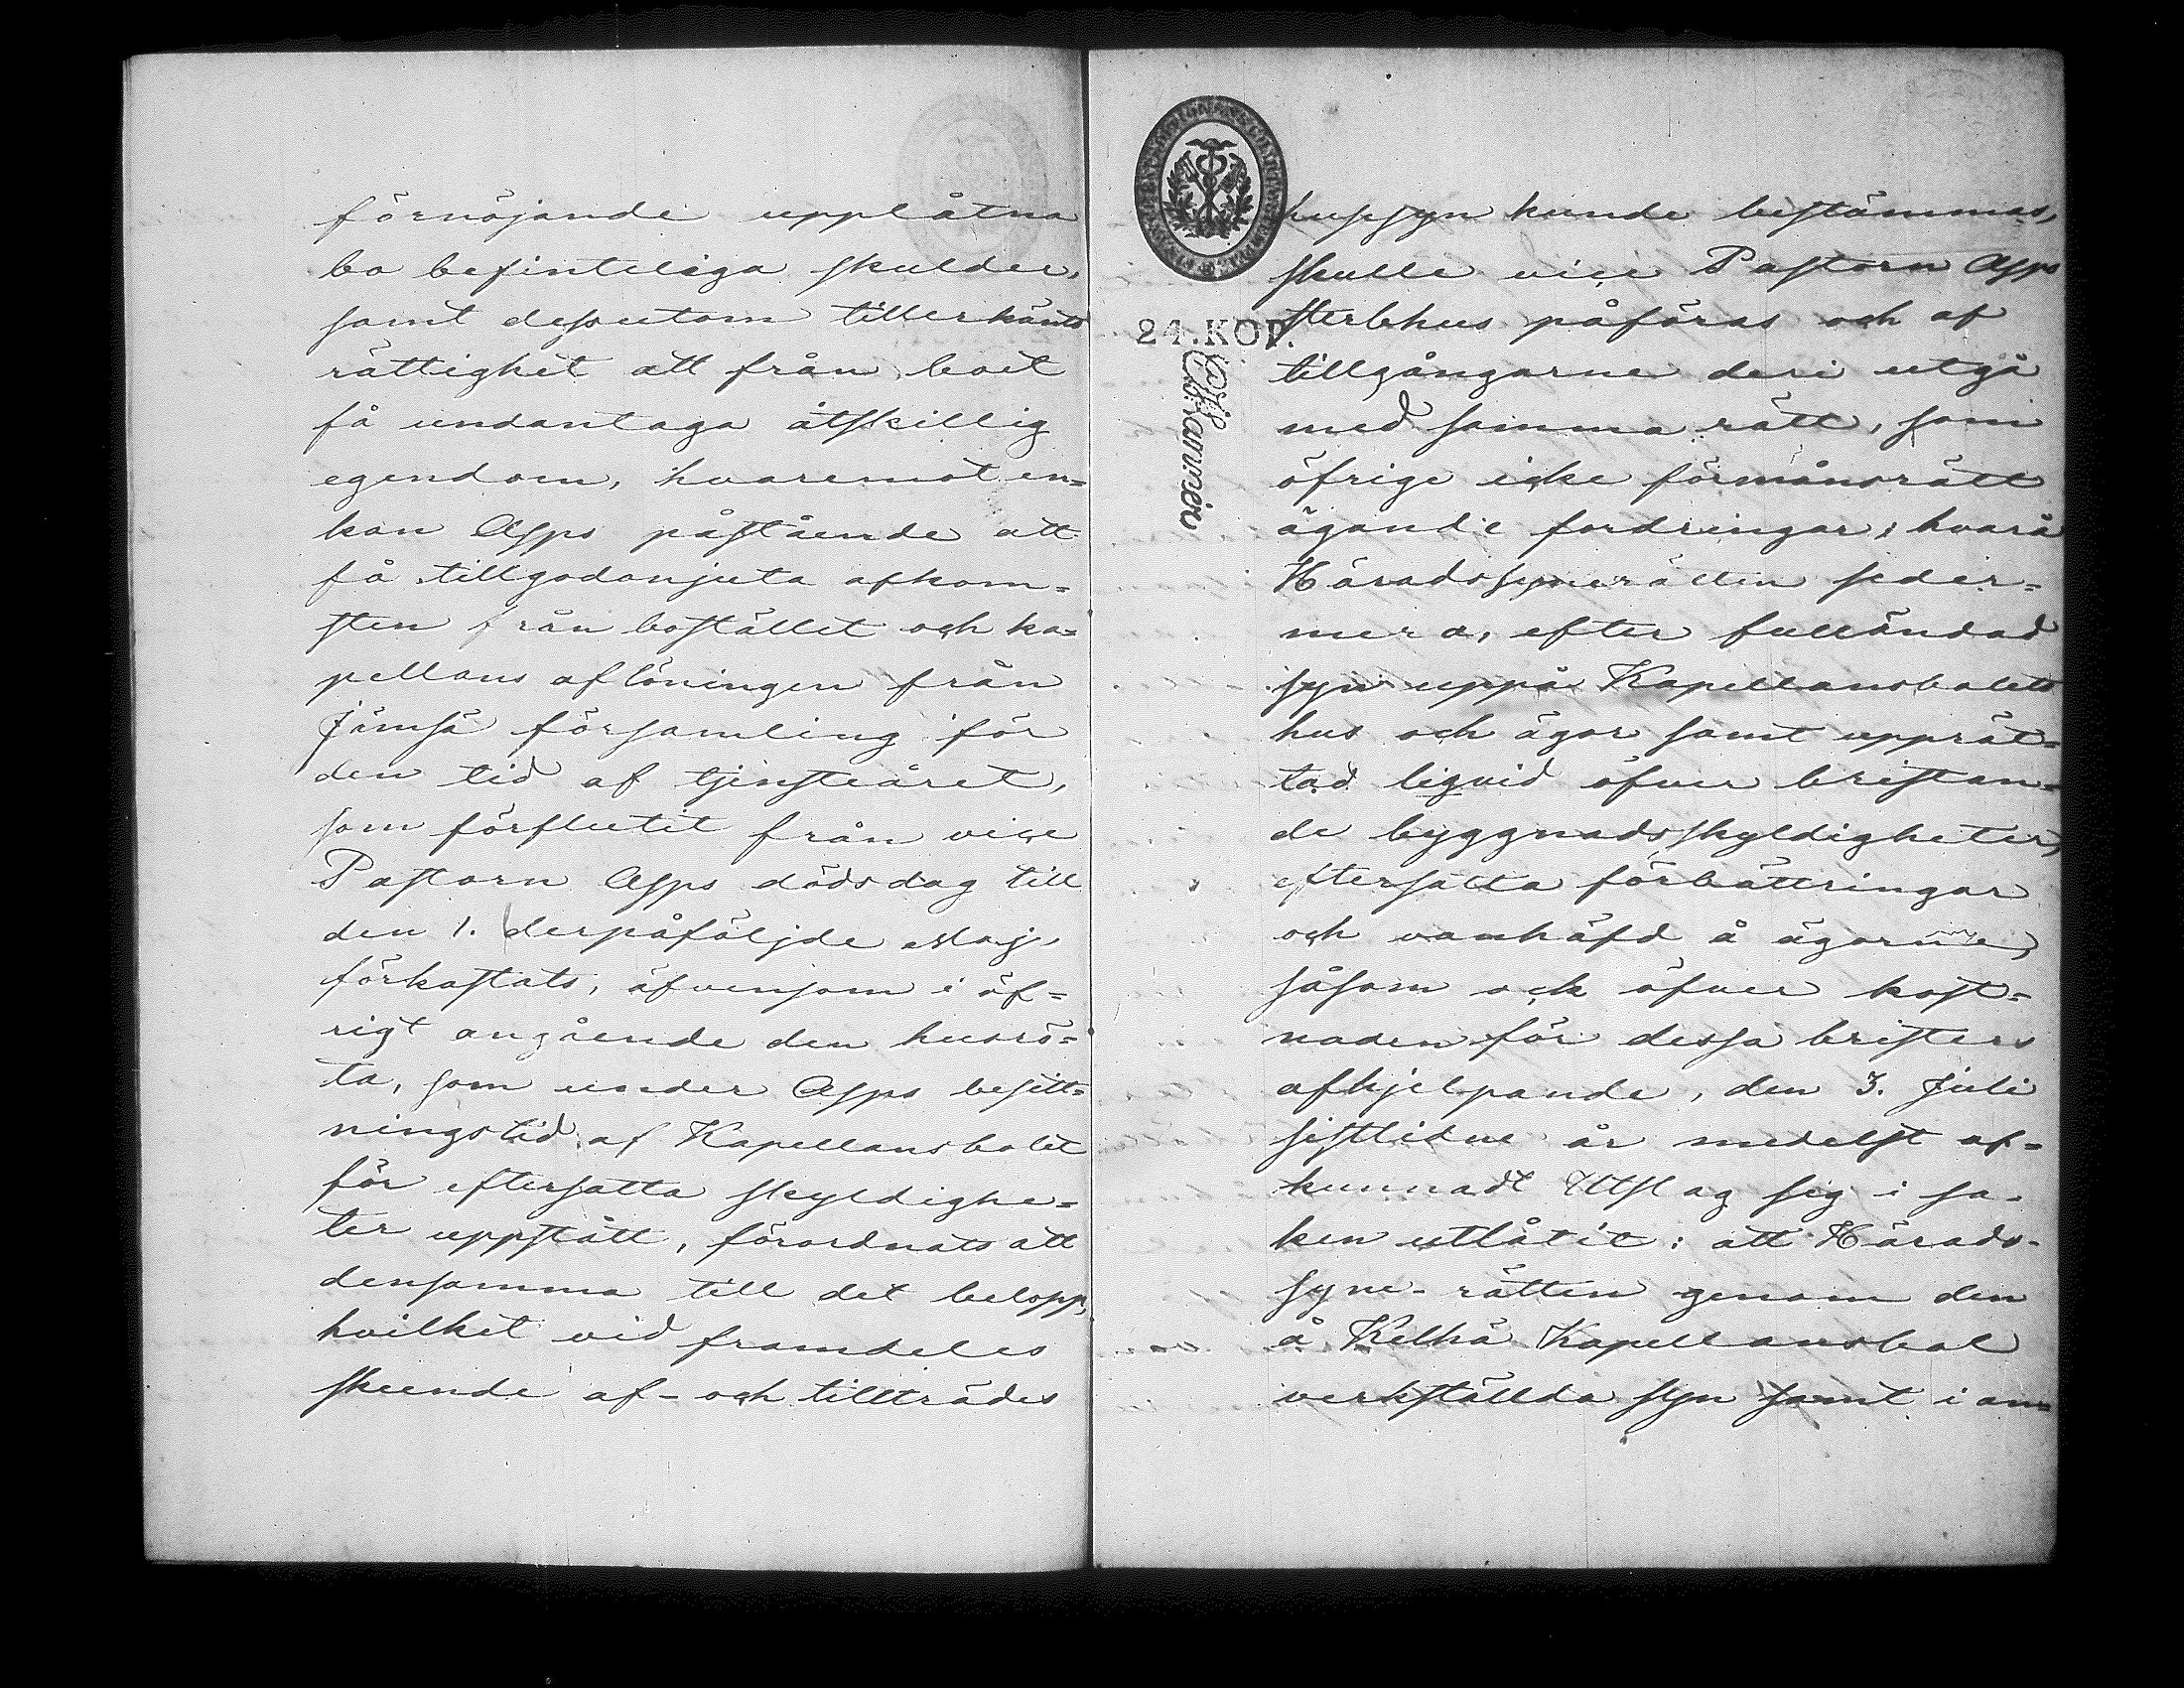 förnöjande upplåtna
bo befinteliga skulder,
samt dessutom tillerkänts
rättighet att från boet
få undantaga åtskillig
egendom, hvaremot en=
kan Asps påstående att
få tillgodonjuta afkom=
sten från bostället och ka=
pellans aflöningen från
Jämsä församling för
den tid af tjensteåret,
som förflutit från vice
Pastorn Asps dödsdag till
den 1. derpåföljde Maj,
förkastats, äfvensom i öf=
rigt angående den husrö=
ta, som under Asps besitt=
ningstid af Kapellansbolet
för eftersatta skyldighe=
ter uppstått, förordnats att
densamma till det belopp,
hvilket vid framdeles
skeende af- och tillträdes
hussyn kunde bestämmas,
skulle vice Pastorn Asps
sterbhus påföras och af
24. KOP.
tillgångarne deri utgå
med samma rätt, som
öfrige icke förmånsrätt
ägande fordringar; hvarå
Häradssynerätten seder=
mera, efter fulländad
syn uppå Kapellansbolets
hus och ägor samt upprät=
tad liqvid öfver bristan=
de byggnadsskyldigheter,
eftersatta förbättringar
och vanhäfd å ägorne,
såsom ock öfver kost=
naden för dessa bristers
afhjelpande, den 3. Juli
sistlidne år medelst af=
kunnadt Utslag sig i sa-
ken utlåtit: att Härads-
syne-rätten genom den
å Kelhä Kapellansbol
verkställda syn samt i an=